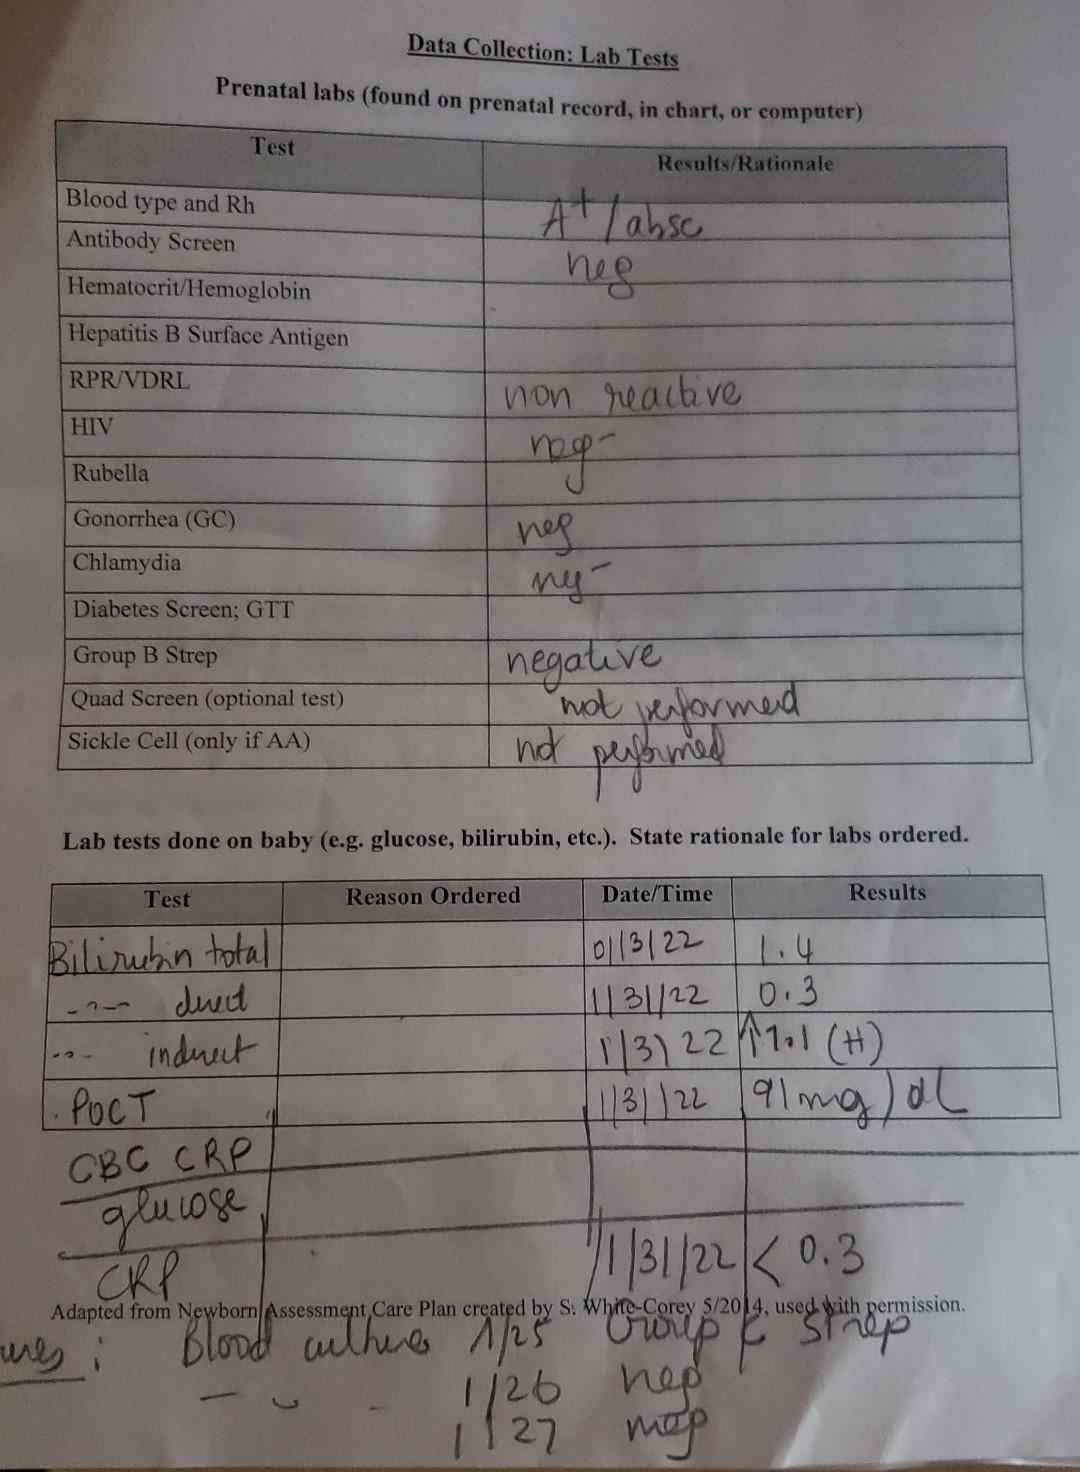 Data Collection: Lab Tests
Prenatal labs (found on prenatal record, in chart, or computer)
Test Results/Rationale
Blood type and Rh A+/absc
Antibody Screen neg
Hematocrit/Hemoglobin
Hepatitis B Surface Antigen
RPR/VDRL non reactive
HIV neg-
Rubella
Gonorrhea (GC) neg
Chlamydia neg-
Diabetes Screen; GTT
Group B Strep negative
Quad Screen (optional test) not performed
Sickle Cell (only if AA) not performed
Lab tests done on baby (e.g. glucose, bilirubin, etc.). State rationale for labs ordered.
Test Reason Ordered Date/Time Results
Bilirubin total 1.4
direct 1/31/22 0.3
indirect ↑1.1 (H)
POCT 1/31/22 91mg/dL
CBC CRP
glucose
CRP 1/31/22 < 0.3
Adapted from Newborn Assessment Care Plan created by S. White-Corey 5/2014, used with permission.
: Blood cultures 1/25 Group strep
1/26 neg
1/27 neg